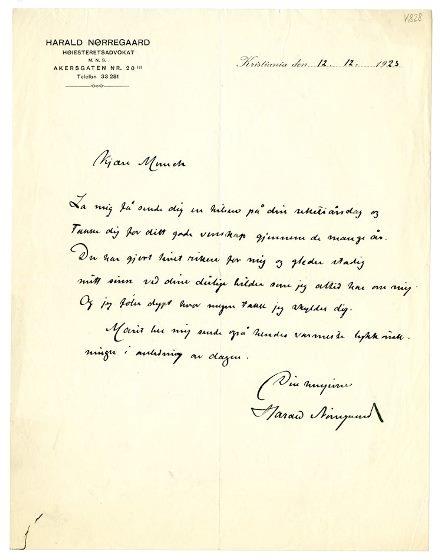 K828
HARALD NØRREGAARD
HØIESTERETSADVOKAT
M. N. S.
AKERSGATEN NR. 20 III
Telefon 33 281
Kristiania den 12. 12. 1923
Kjære Munch
La mig få sende dig en hilsen på din sekstiårsdag og
takke dig for ditt gode venskap gjennem de mange år.
Du har gjort livet rikere for mig og gleder stadig
mitt sinn ved dine deilige bilder som jeg altid har om mig.
Og jeg føler dypt hvor megen takk jeg skylder dig.
Marit ber mig sende også hendes varmeste lykkønsk-
ninger i anledning av dagen.
Din
Harald Nørregaard